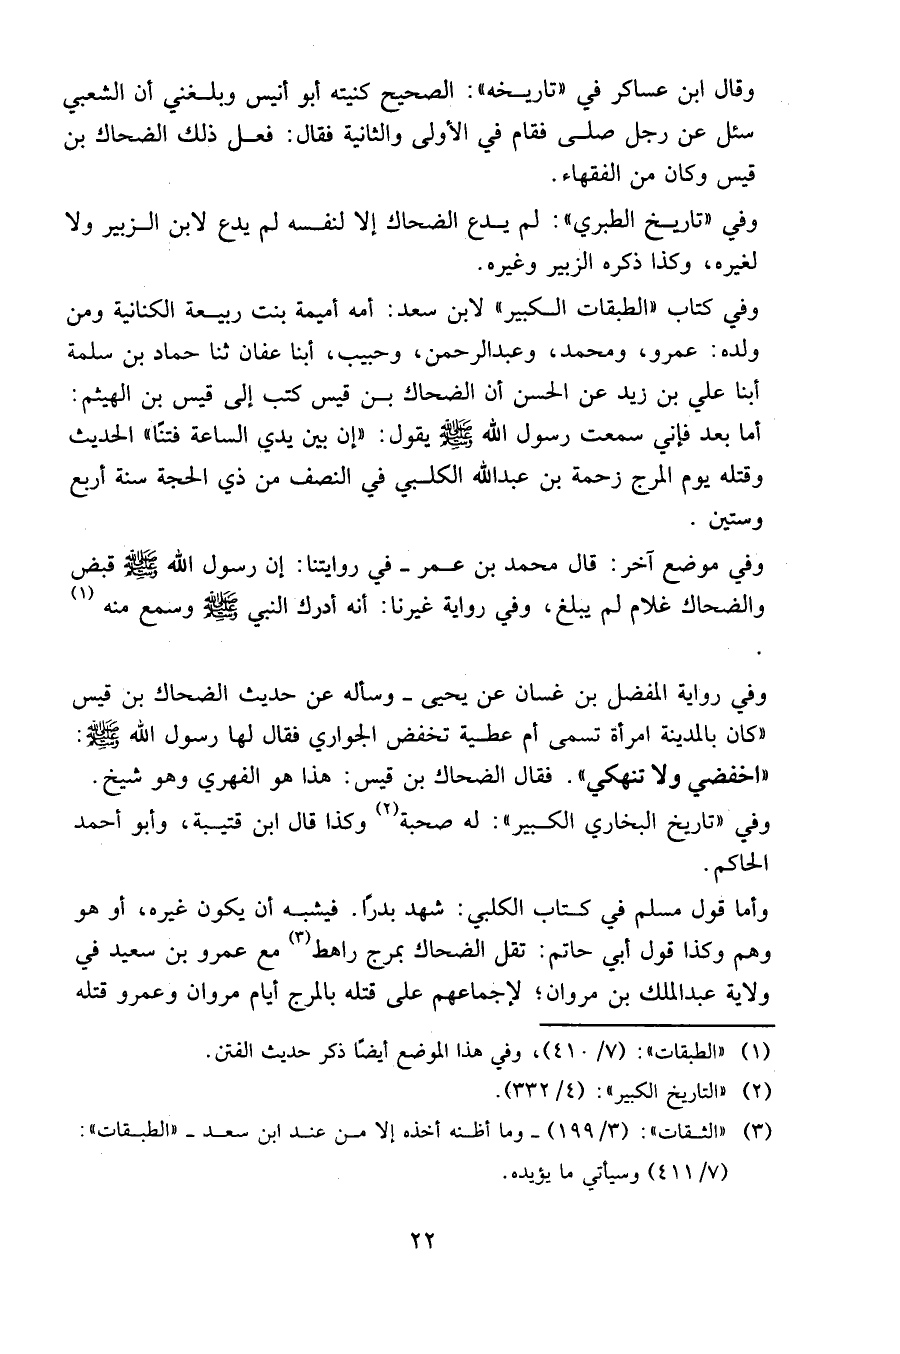 وقال ابن عساكر في «تاريخه»: الصحيح كنيته أبو أنيس وبلغني أن الشعبي
سئل عن رجل صلى فقام في الأولى والثانية فقال: فعل ذلك الضحاك بن
قيس وكان من الفقهاء.
وفي «تاريخ الطبري»: لم يدع الضحاك إلا لنفسه لم يدع لابن الزبير ولا
لغيره، وكذا ذكره الزبير وغيره.
وفي كتاب «الطبقات الكبير» لابن سعد: أمه أميمة بنت ربيعة الكنانية ومن
ولده: عمرو، ومحمد، وعبدالرحمن، وحبيب، أبنا عفان ثنا حماد بن سلمة
أبنا علي بن زيد عن الحسن أن الضحاك بن قيس كتب إلى قيس بن الهيثم:
أما بعد فإني سمعت رسول الله ﷺ يقول: «إن بين يدي الساعة فتنًا» الحديث
وقتله يوم المرج زحمة بن عبدالله الكلبي في النصف من ذي الحجة سنة أربع
وستين .
وفي موضع آخر: قال محمد بن عمر - في روايتنا: إن رسول الله ﷺ قبض
والضحاك غلام لم يبلغ، وفي رواية غيرنا: أنه أدرك النبي ﷺ وسمع منه (١)
.
وفي رواية المفضل بن غسان عن يحيى - وسأله عن حديث الضحاك بن قيس
«كان بالمدينة امرأة تسمى أم عطية تخفض الجواري فقال لها رسول الله ﷺ:
«اخفضي ولا تنهكي». فقال الضحاك بن قيس: هذا هو الفهري وهو شيخ.
وفي «تاريخ البخاري الكبير»: له صحبة(٢) وكذا قال ابن قتيبة، وأبو أحمد
الحاكم.
وأما قول مسلم في كتاب الكلبي: شهد بدرًا. فيشبه أن يكون غيره، أو هو
وهم وكذا قول أبي حاتم: تقل الضحاك بمرج راهط(٣) مع عمرو بن سعيد في
ولاية عبدالملك بن مروان؛ لإجماعهم على قتله بالمرج أيام مروان وعمرو قتله
(١) «الطبقات»: (٧/ ٤١٠)، وفي هذا الموضع أيضًا ذكر حديث الفتن.
(٢) «التاريخ الكبير»: (٤/ ٣٣٢).
(٣) «الثقات»: (٣/ ١٩٩) - وما أظنه أخذه إلا من عند ابن سعد - «الطبقات»:
(٧/ ٤١١) وسيأتي ما يؤيده.
٢٢